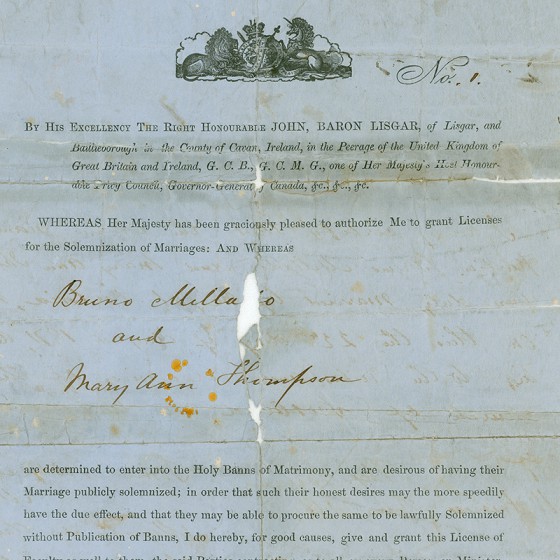 No. 1.
By His Excellency The Right Honourable JOHN, BARON LISGAR, of Lisgar, and
Bailieborough in the County of Cavan, Ireland, in the Peerage of the United Kingdom of
Great Britain and Ireland, G. C. B., G. C. M. G., one of Her Majesty's Most Honour-
able Privy Council, Governor-General of Canada, &c., &c., &c.
WHEREAS Her Majesty has been graciously pleased to authorize Me to grant Licenses
for the Solemnization of Marriages: And Whereas
Bruno
and
Mary Ann Thompson
are determined to enter into the Holy Banns of Matrimony, and are desirous of having their
Marriage publicly solemnized; in order that such their honest desires may the more speedily
have the due effect, and that they may be able to procure the same to be lawfully Solemnized
without Publication of Banns, I do hereby, for good causes, give and grant this License of